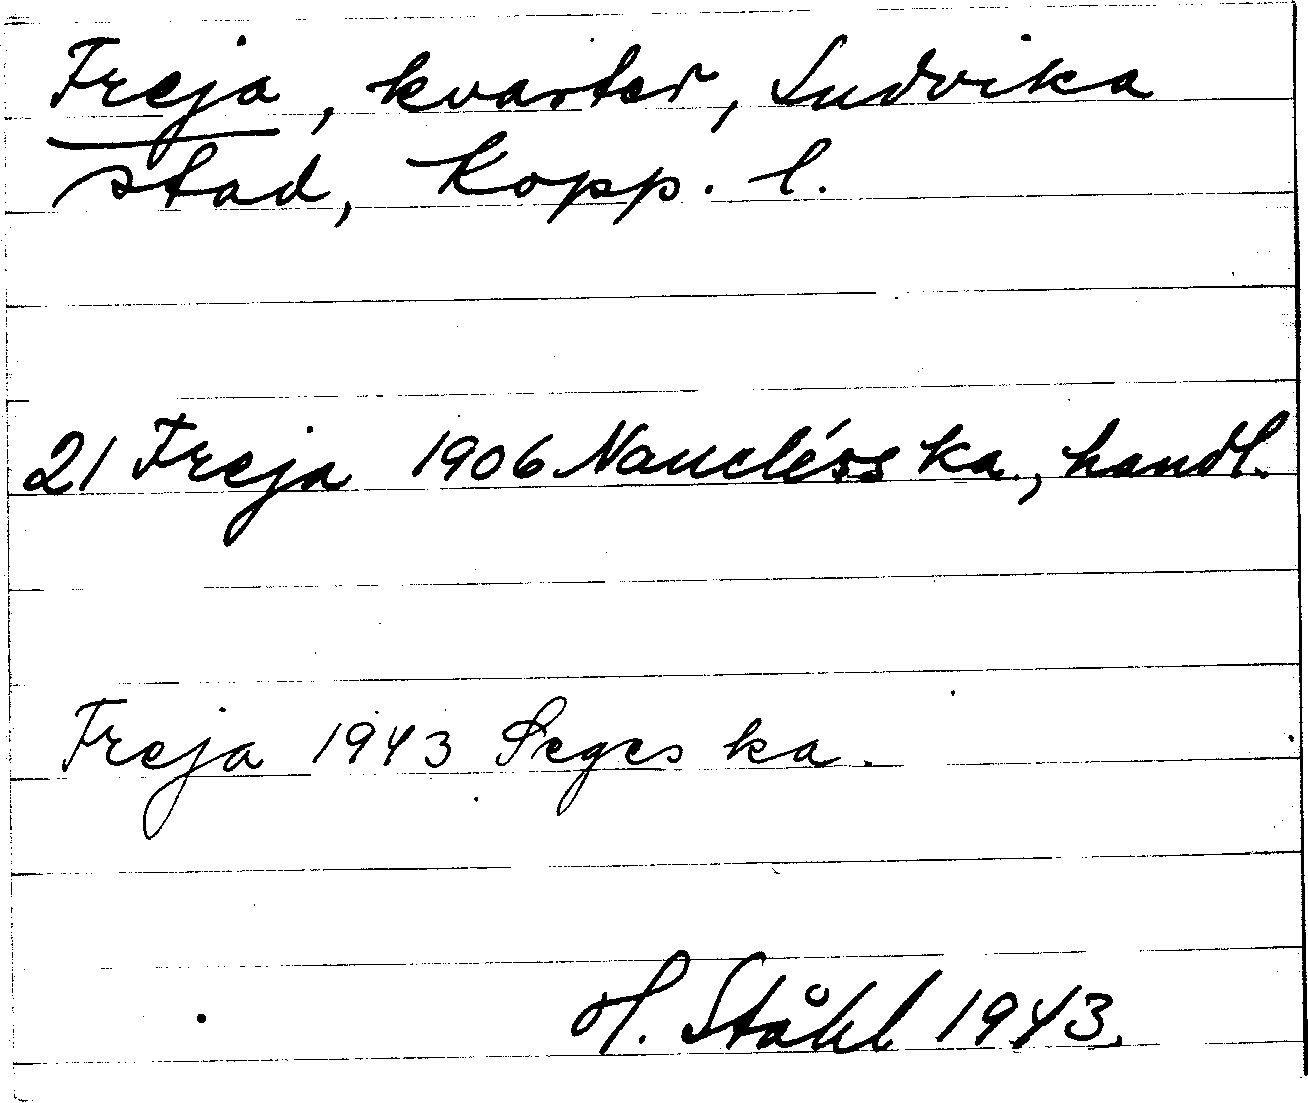 Freja, kvarter, Ludvika
stad, Kopp. l.
21 Freja 1906 Nauclérs ka., handl.
Freja 1943 Seges ka.
H. Ståhl 1943.